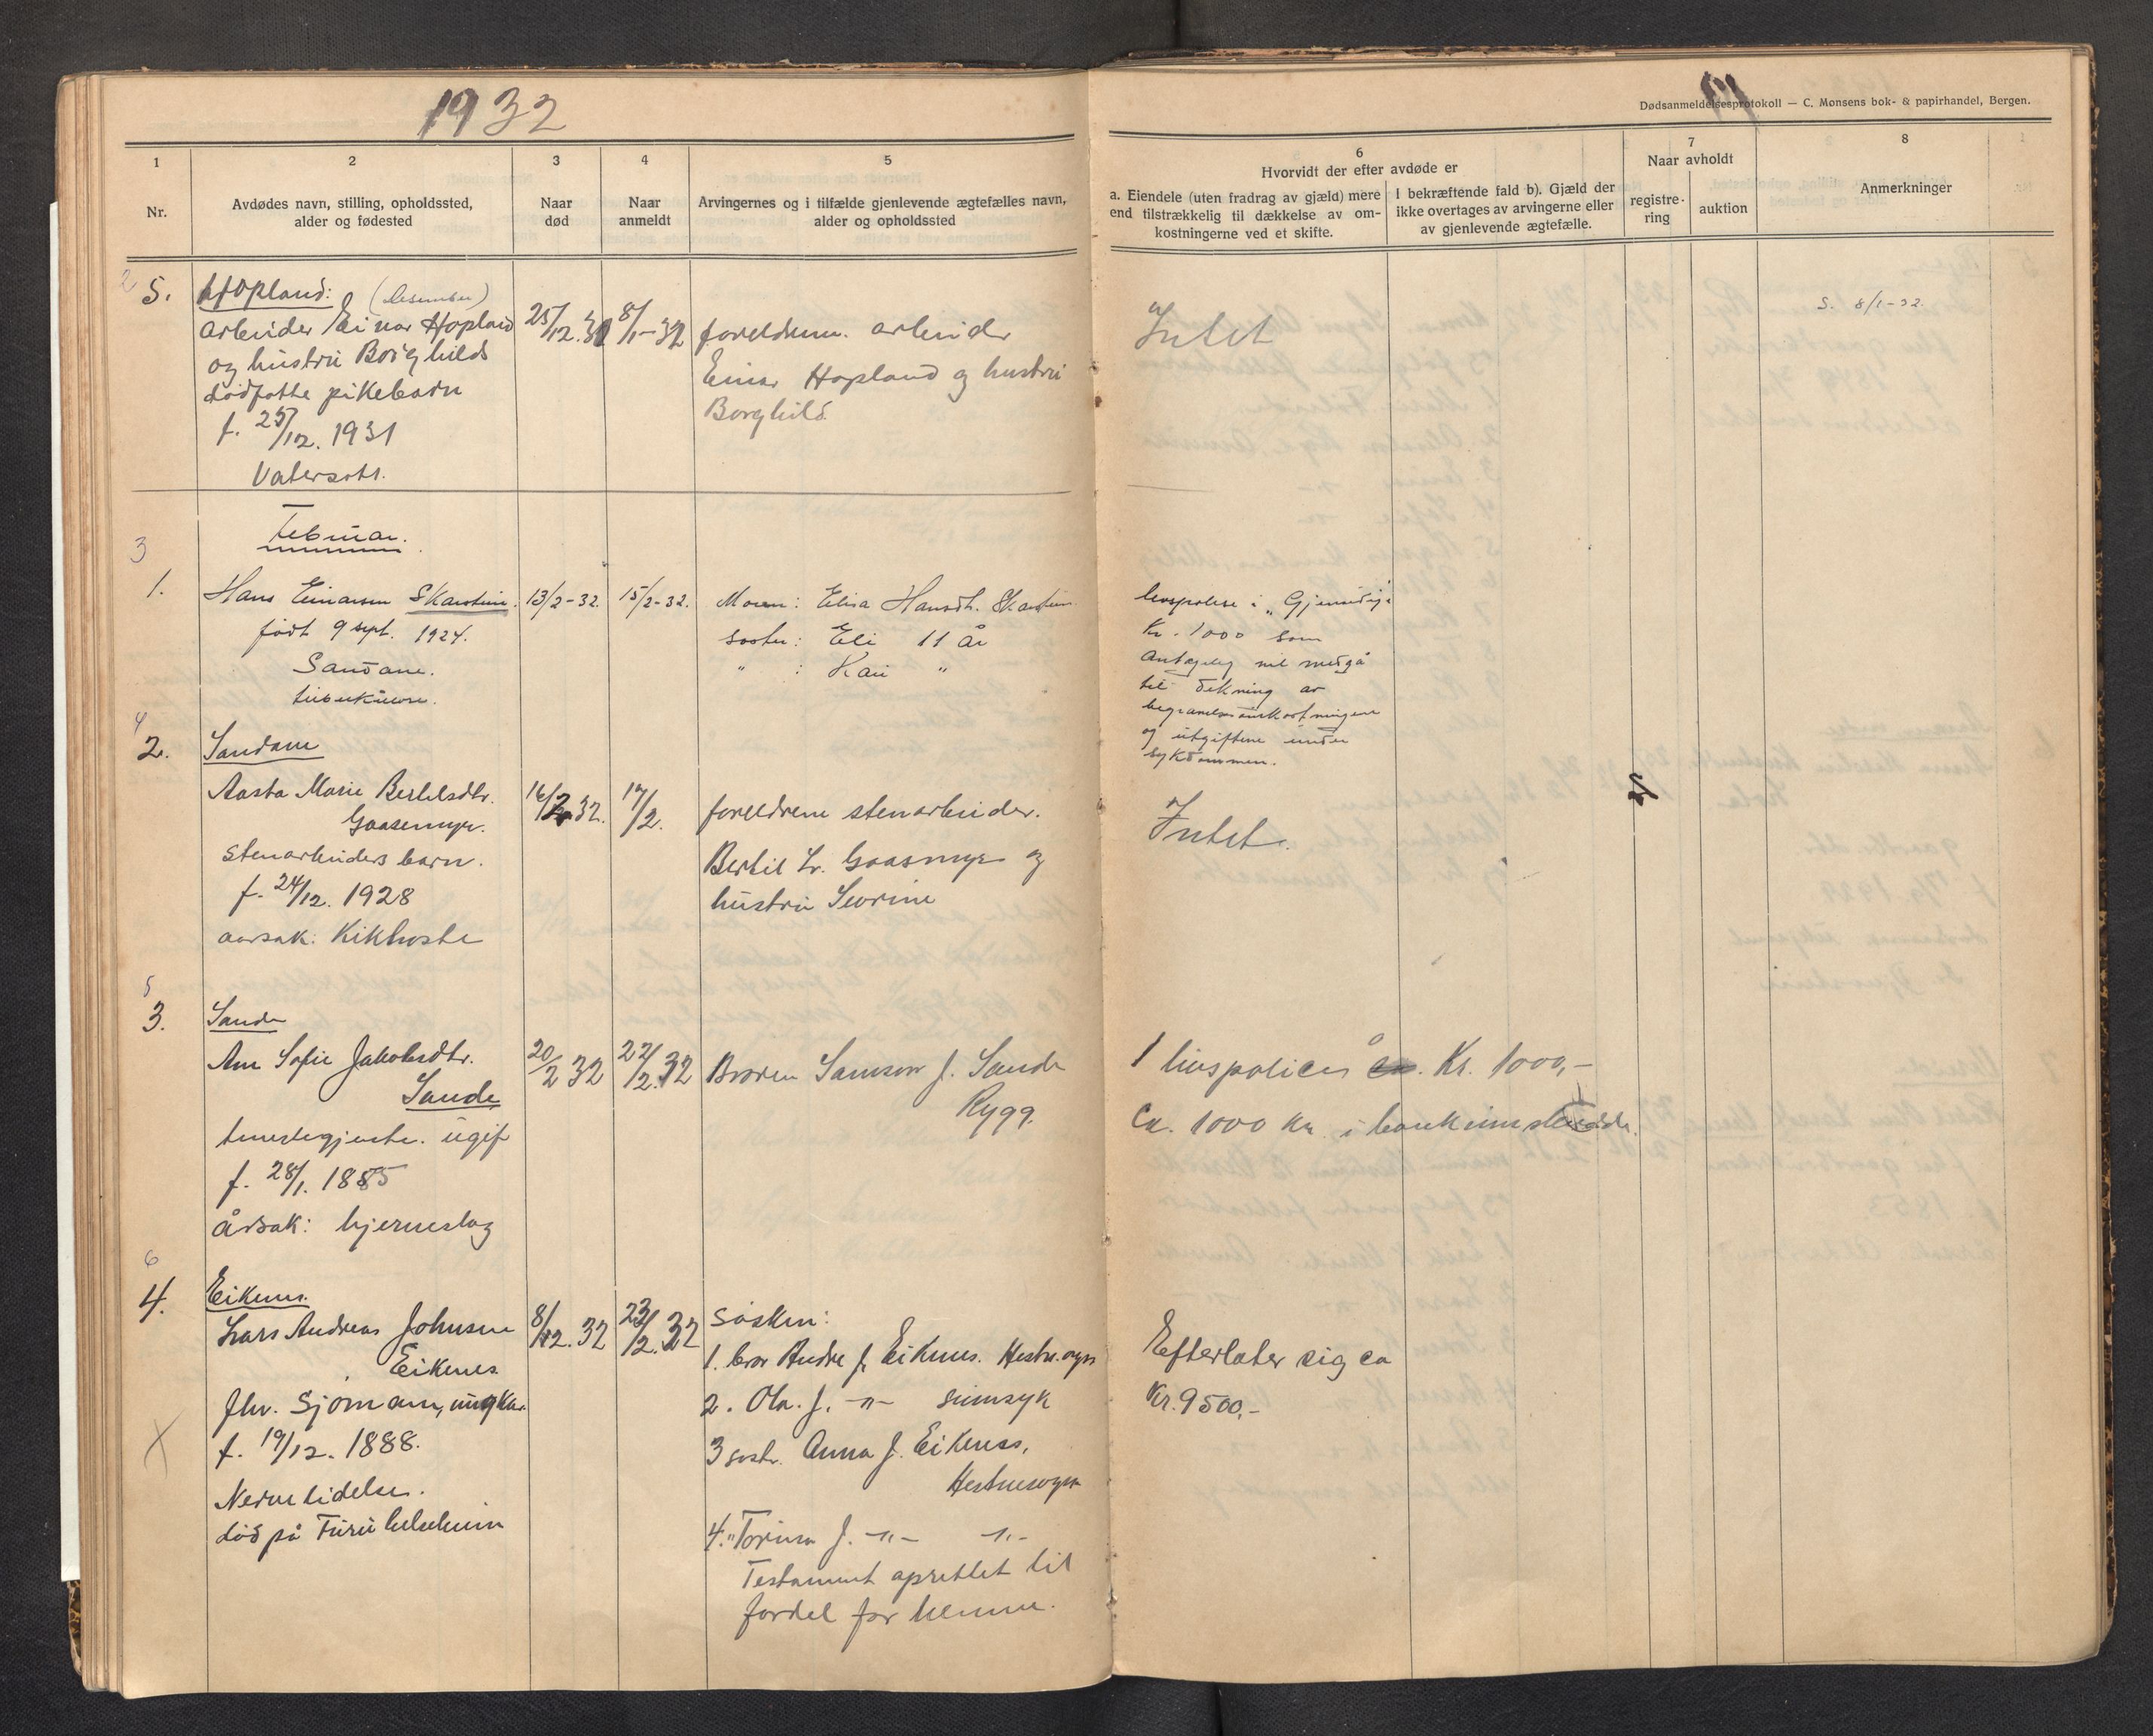 1932
11
Dødsanmeldelsesprotokoll — C. Monsens bok- & papirhandel, Bergen.
1
Nr.
2
Avdødes navn, stilling, opholdssted,
alder og fødested
3
Naar
død
4
Naar
anmeldt
5
Arvingernes og i tilfælde gjenlevende ægtefælles navn,
alder og opholdssted
6
Hvorvidt der efter avdøde er
a. Eiendele (uten fradrag av gjæld) mere
end tilstrækkelig til dækkelse av om-
kostningerne ved et skifte.
I bekræftende fald b). Gjæld der
ikke overtages av arvingerne eller
av gjenlevende ægtefælle.
7
Naar avholdt
registre-
ring
auktion
8
Anmerkninger
2
5.
Hopland:
(Desember)
Arbeider Einar Hopland
og hustru Borghilds
dødfødte pikebarn
f. 25/12. 1931
Vatersott.
25/12.31
8/1-32
foreldrene. arbeider
Einar Hopland og hustru
Borghild
Intet
S. 8/1-32.
Februar.
3
1.
Hans Einarsen Skarstein.
født 9 sept. 1924.
Sandane.
tuberkulose.
13/2-32.
15/2-32.
Moren: Elisa Hansdt. Skarstein
søster: Eli 11 år
" : Kari "
livspolise i „Gjensidige
Kr. 1000 som
antagelig vil medgå
til dekning av
begravelsesomkostningene
og utgiftene under
sykdommen.
4
2.
Sandane
Aasta Marie Bertelsdtr.
Gaasemyr.
stenarbeiders barn.
f. 24/12. 1928
aarsak: Kikhoste
16/2 32.
17/2.
foreldrene stenarbeider.
Bertil Gaasmyr og
hustru Severine
Intet.
5
3.
Sande
Ane Sofie Jakobsdtr.
Sande
tenestegjente. ugift
f. 28/1. 1885
årsak: hjerneslag
20/2 32
22/2.32
Broren Samson J. Sande
Rygg.
1 livspolices å Kr. 1000,-
Ca. 1000 Kr. i bankinnskudd.
6
4.
Eikenes.
Lars Andreas Johnsen
Eikenes
fhv. Sjømann, ungkar.
f. 19/12. 1888.
Nervelidelse.
død på Furu helseheim
X
8/2.32
23/2.32
Søsken:
1. bror Andre J. Eikenes. Hestenesøyra
2. Ola. J. -"- sinnsyk
3 søstr. Anna J. Eikenes,
Hestenesøyra
4. " Torina J. -"- -"-
Testament oprettet til
fordel for henne.
Efterlater sig ca
Kr. 9500.-